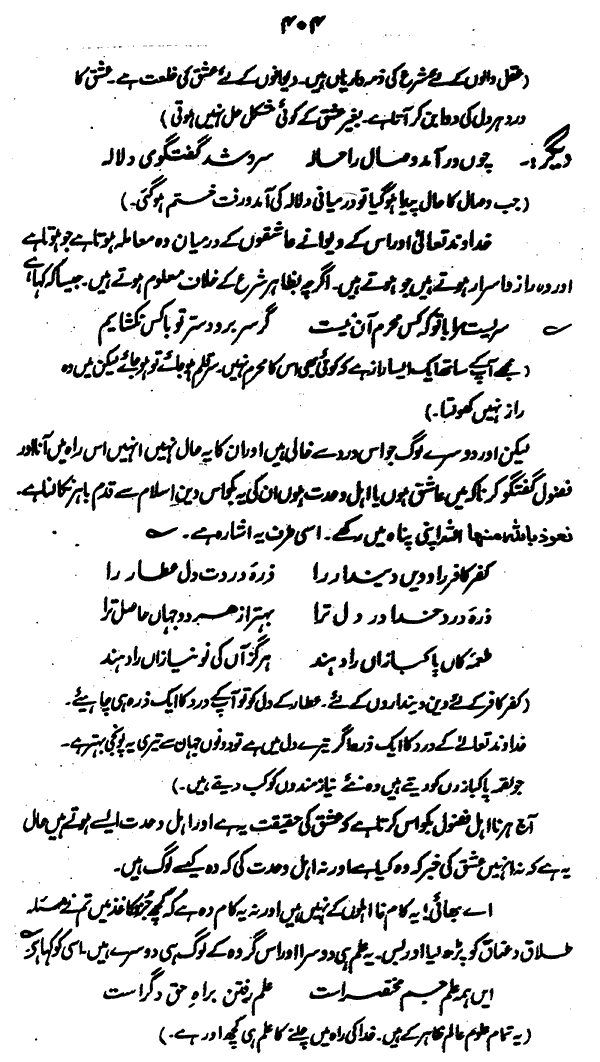 ۴۰۴
(عقل والوں کے لئے شرع کی ذمہ داریاں ہیں۔ دیوانوں کے لئے عشق کی خلعت ہے۔ عشق کا
درد ہر دل کی دوا بن کر آتا ہے۔ بغیر عشق کے کوئی مشکل حل نہیں ہوتی)
دیگر:۔ چوں در آمد وصال را حالہ سرد شد گفتگوی دلالہ
(جب وصال کا حال پیدا ہوگیا تو درمیانی دلالہ کی آمد ورفت ختم ہوگئی۔)
خداوند تعالیٰ اور اس کے دیوانے عاشقوں کے درمیان وہ معاملہ ہوتا ہے جو ہوتا ہے
اور وہ راز و اسرار ہوتے ہیں جو ہوتے ہیں۔ اگرچہ بظاہر شرع کے خلاف معلوم ہوتے ہیں۔ جیسا کہ کہا ہے
سریست مرا با تو کہ کس محرم آن نیست گر سر برود سر تو با کس نکشایم
(مجھے آپ کے ساتھ ایک ایسا راز ہے کہ کوئی بھی اس کا محرم نہیں۔ سر قلم ہو جائے تو ہو جائے لیکن میں وہ
راز نہیں کھولتا۔)
لیکن اور دوسرے لوگ جو اس درد سے خالی ہیں اور ان کا یہ حال نہیں انہیں اس راہ میں آنا اور
فضول گفتگو کرنا کہ میں عاشق ہوں یا اہل وحدت ہوں ان کی یہ بکواس دین اسلام سے قدم باہر نکالنا ہے۔
نعوذ باللہ منھا اللہ اپنی پناہ میں رکھے۔ اسی طرف یہ اشارہ ہے۔
کفر کافر را و دیں دیندار را ذرۂ دردت دل عطار را
ذرۂ درد خدا در دل ترا بہتر از ہر دو جہاں حاصل ترا
طعمۂ کاں پاکبازاں را دہند ہرگز آں کی نو نیازاں را دہند
(کفر کافر کے لئے دین دینداروں کے لئے۔ عطار کے دل کو تو آپ کے درد کا ایک ذرہ ہی چاہیے۔
خداوند تعالےٰ کے درد کا ایک ذرہ اگر تیرے دل میں ہے تو دونوں جہان سے تیری یہ پونجی بہتر ہے۔
جو لقمہ پاکبازوں کو دیتے ہیں وہ نئے نیاز مندوں کو کب دیتے ہیں۔)
آج ہر نا اہل فضول بکواس کرتا ہے کہ عشق کی حقیقت یہ ہے اور اہل وحدت ایسے ہوتے ہیں حال
یہ ہے کہ نہ انہیں عشق کی خبر کہ وہ کیا ہے اور نہ اہل وحدت کی کہ وہ کیسے لوگ ہیں۔
اے بھائی! یہ کام نا اہلوں کے نہیں ہیں اور نہ یہ کام وہ ہے کہ کچھ جزو کاغذ میں تم نے مسئلہ
طلاق و عتاق کو پڑھ لیا اور بس۔ یہ علم ہی دوسرا اور اس گروہ کے لوگ ہی دوسرے ہیں۔ اسی کو کہا ہے
ایں ہمہ علم جسم مختصر است علم رفتن براہ حق دگر است
(یہ تمام علوم عالم ظاہر کے ہیں۔ خدا کی راہ میں چلنے کا علم ہی کچھ اور ہے۔)